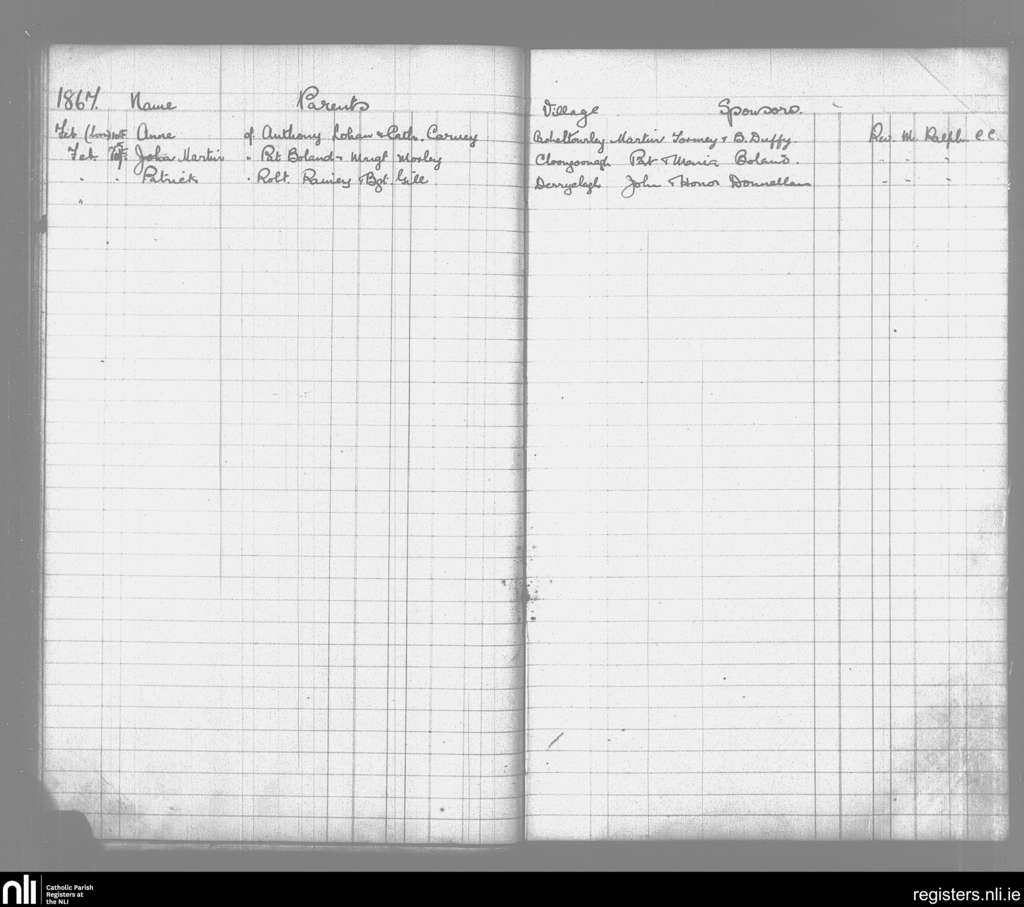 1867. Name Parents Village Sponsors.
Feb (born) Anne of Anthony Lohan & Cath. Carney Martin Tormey & B. Duffy. Rev. M. Ralph C.C.
Feb John Martin " Pat Boland & Margt Morley Cloongoonagh Pat & Maria Boland. " " "
" " Patrick " Robt. Rainey & Bgt. Gill Derryclagh John & Honor Donnellan " " "
"
nli Catholic Parish
Registers at
the NLI
registers.nli.ie